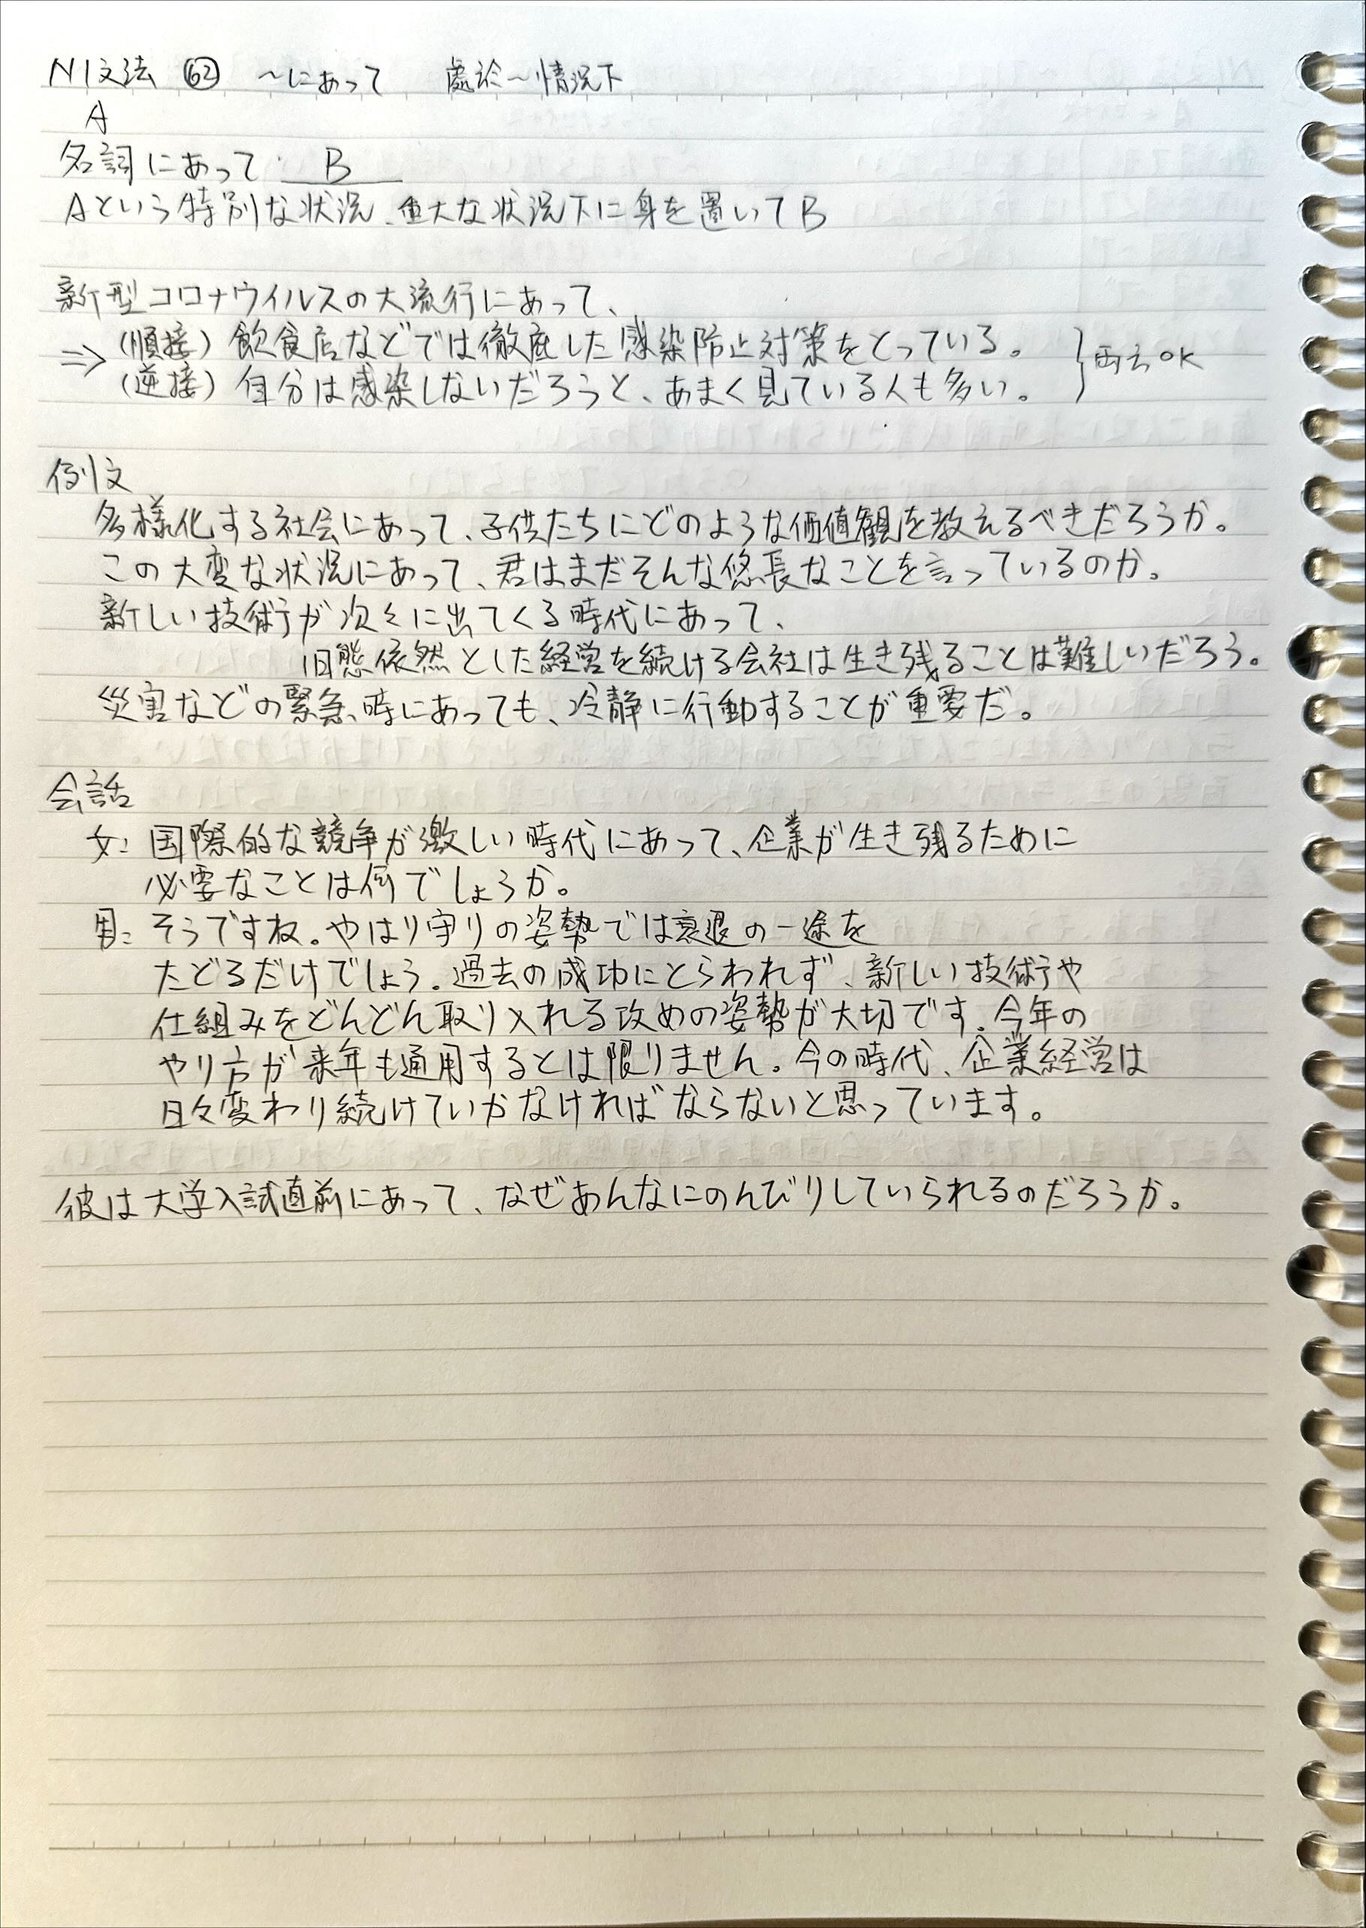 N1文法 62 ~にあって 處於~情況下
A
名詞にあって B
Aという特別な状況、重大な状況下に身を置いてB
新型コロナウイルスの大流行にあって、
⇒ (順接) 飲食店などでは徹底した感染防止対策をとっている。
(逆接) 自分は感染しないだろうと、あまく見ている人も多い。 } 両方OK
例文
多様化する社会にあって、子供たちにどのような価値観を教えるべきだろうか。
この大変な状況にあって、君はまだそんな悠長なことを言っているのか。
新しい技術が次々に出てくる時代にあって、
旧態依然とした経営を続ける会社は生き残ることは難しいだろう。
災害などの緊急時にあっても、冷静に行動することが重要だ。
会話
女: 国際的な競争が激しい時代にあって、企業が生き残るために
必要なことは何でしょうか。
男: そうですね。やはり守りの姿勢では衰退の一途を
たどるだけでしょう。過去の成功にとらわれず、新しい技術や
仕組みをどんどん取り入れる攻めの姿勢が大切です。今年の
やり方が来年も通用するとは限りません。今の時代、企業経営は
日々変わり続けていかなければならないと思っています。
彼は大学入試直前にあって、なぜあんなにのんびりしていられるのだろうか。